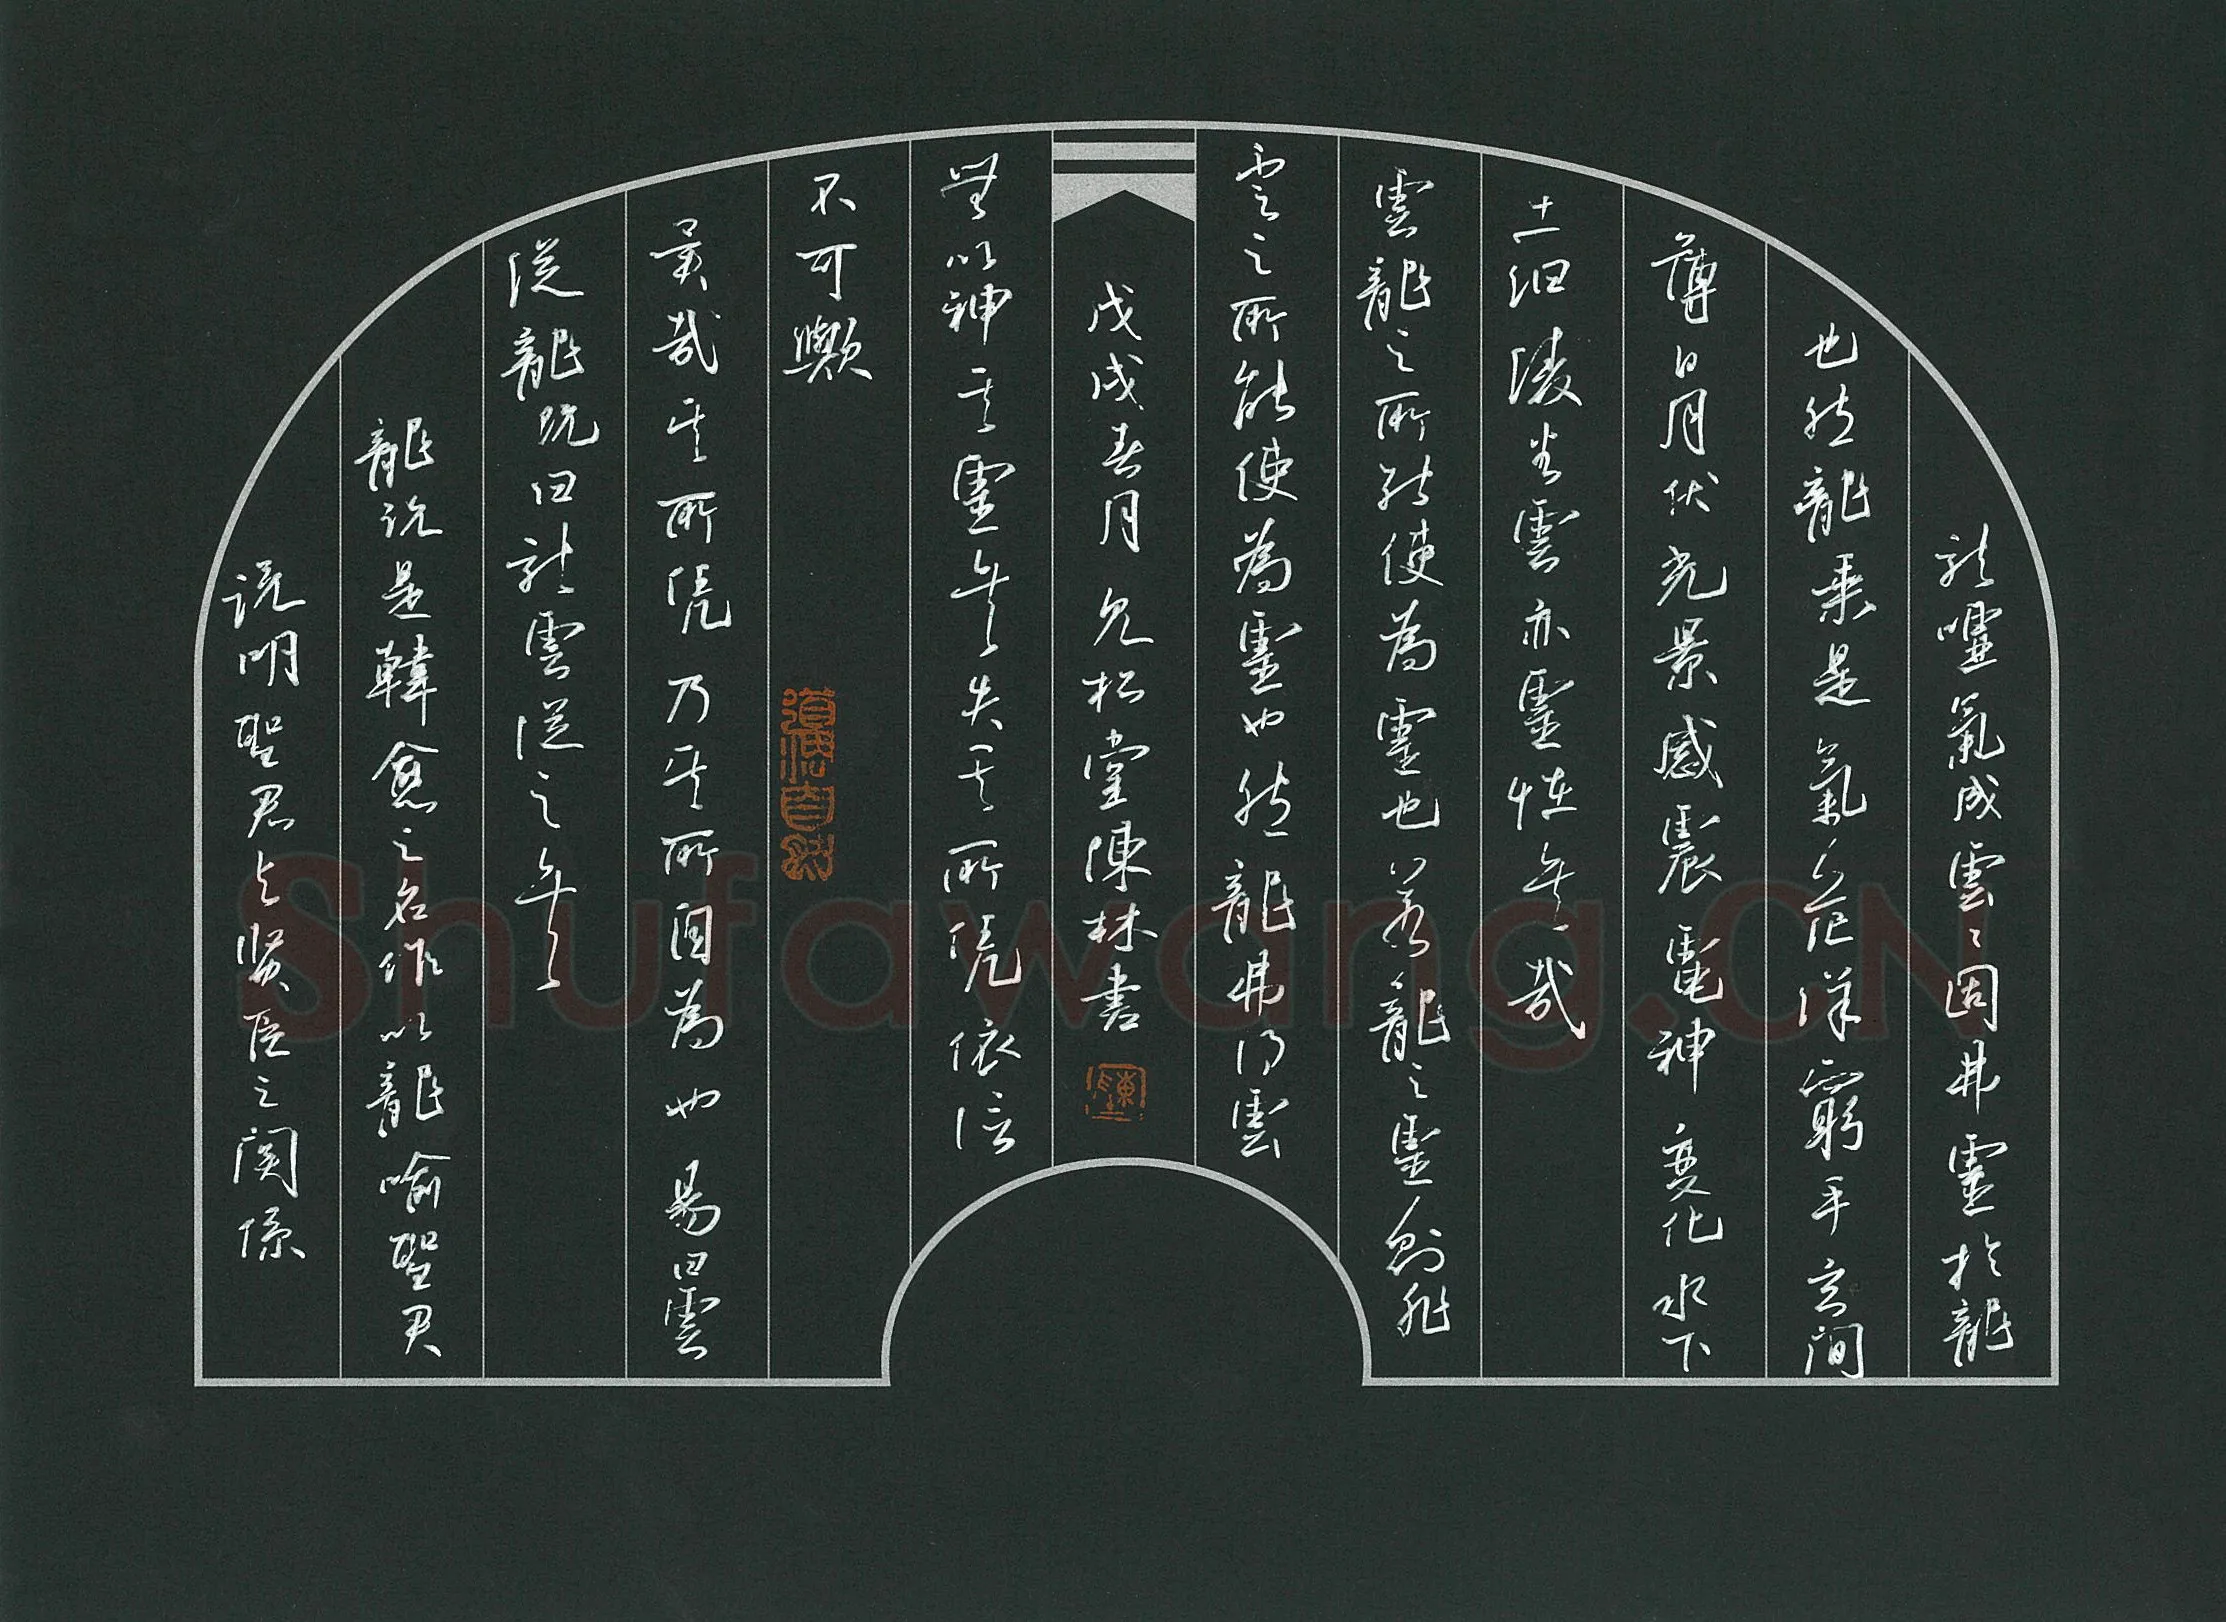 龍噓氣成雲〻固弗靈於龍
也然龍乘是氣茫洋窮乎玄間
薄日月伏光景感震電神變化水下
土汩陵谷雲亦靈怪矣哉
雲龍之所能使為靈也若龍之靈則非
雲之所能使為靈也然龍弗得雲
戊戌春月允松堂陳林書
無以神其靈矣失其所憑依信
不可歟
道法自然
異哉其所憑乃其所自為也易曰雲
從龍既曰龍雲從之矣
龍說是韓愈之名作以龍喻聖君
說明聖君与賢臣之関係
Shufawang.CN